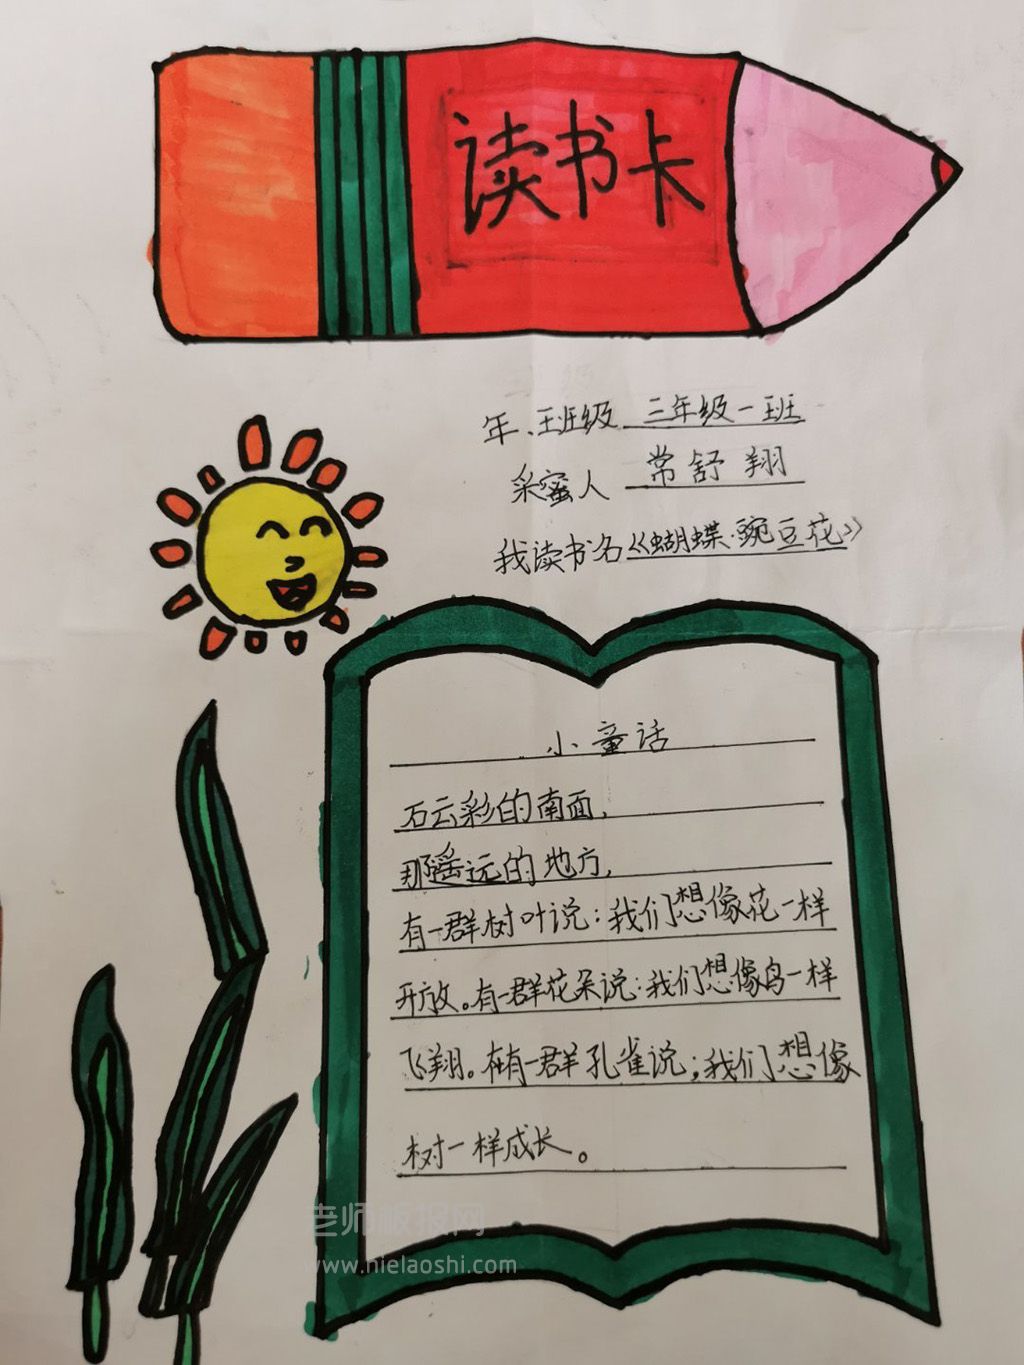 读书卡
年、班级 三年级一班
采蜜人 常舒翔
我读书名《蝴蝶·豌豆花》
小童话
石云彩的南面,
那遥远的地方,
有一群树叶说:我们想像花一样
开放。有一群花朵说:我们想像鸟一样
飞翔。有一群孔雀说;我们想像
树一样成长。
老师板报网
www.nielaoshi.com